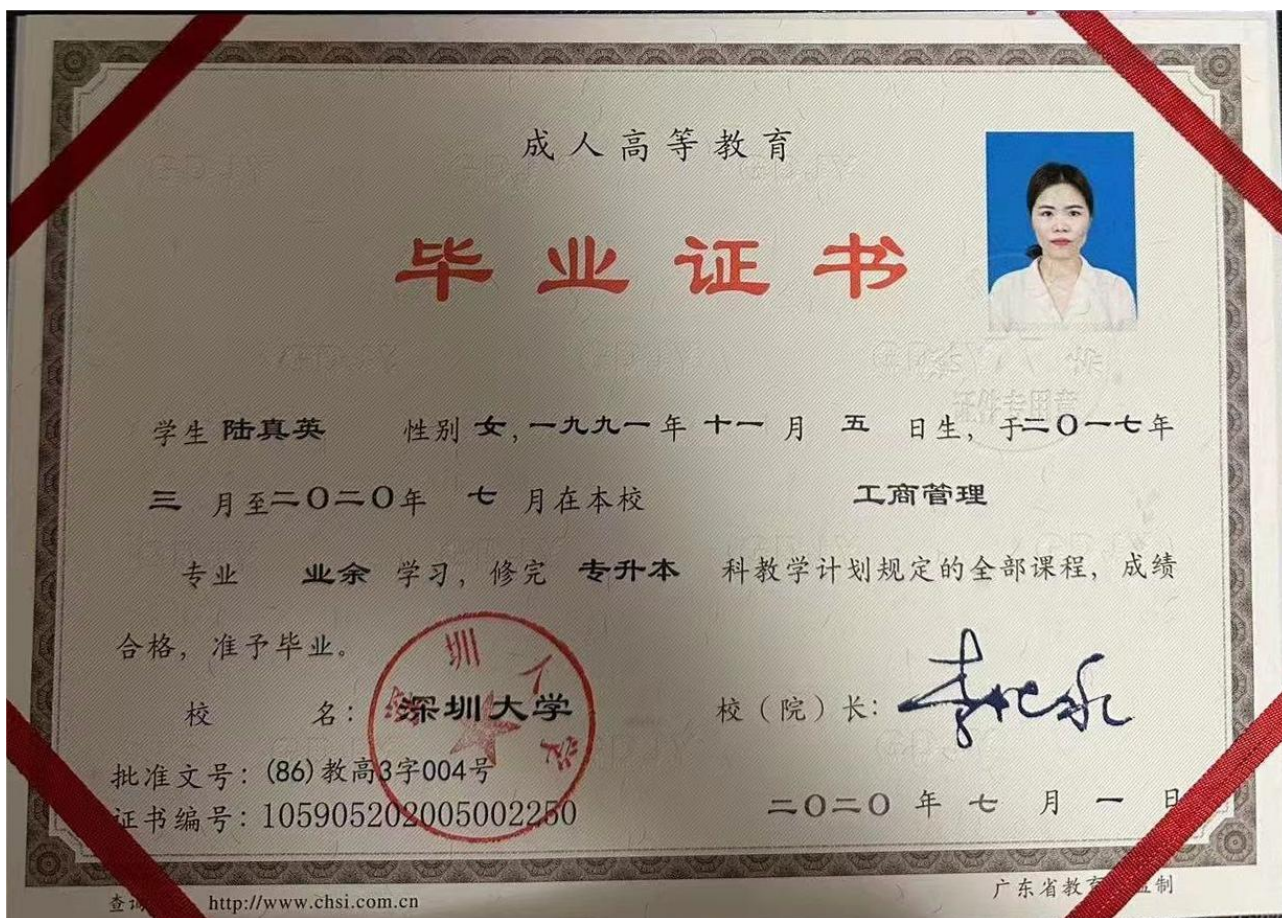 成人高等教育
毕业证书
证件专用章
学生 陆真英 性别 女，一九九一 年 十一 月 五 日生，于二〇一七年
三 月至二〇二〇年 七 月在本校 工商管理
专业 业余 学习，修完 专升本 科教学计划规定的全部课程，成绩
合格，准予毕业。
校 名：深圳大学 校（院）长：
批准文号：(86)教高3字004号
证书编号：105905202005002250 二〇二〇 年 七 月 一 日
http://www.chsi.com.cn 广东省教 制